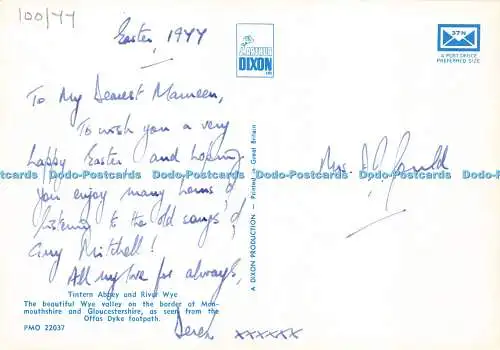 100/77
Easter 1977
To My Dearest Maureen,
To wish you a very
happy Easter and hoping
you enjoy many hours of
listening to the old songs of
Guy Mitchell!
All my love for always,
Derek xxxxxx
Tintern Abbey and River Wye
The beautiful Wye valley on the border of Mon-
mouthshire and Gloucestershire, as seen from the
Offas Dyke footpath.
PMO 22037
ARTHUR
DIXON
A DIXON PRODUCTION — Printed in Great Britain
37N
A POST OFFICE
PREFERRED SIZE
Mrs.
Dodo-Postcards Dodo-Postcards Dodo-Postcards Dodo-Postcards Dodo-Postcards